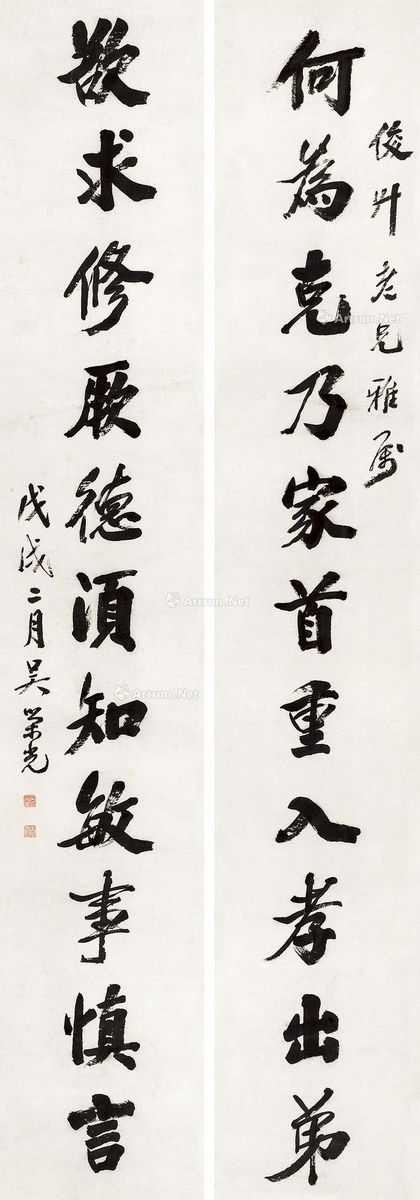 俊升老兄雅属
何為克乃家首重入孝出弟
欲求修厥德須知敏事慎言
戊戌二月吴榮光
Artron.Net
Artron.Net
Artron.Net
Artron.Net